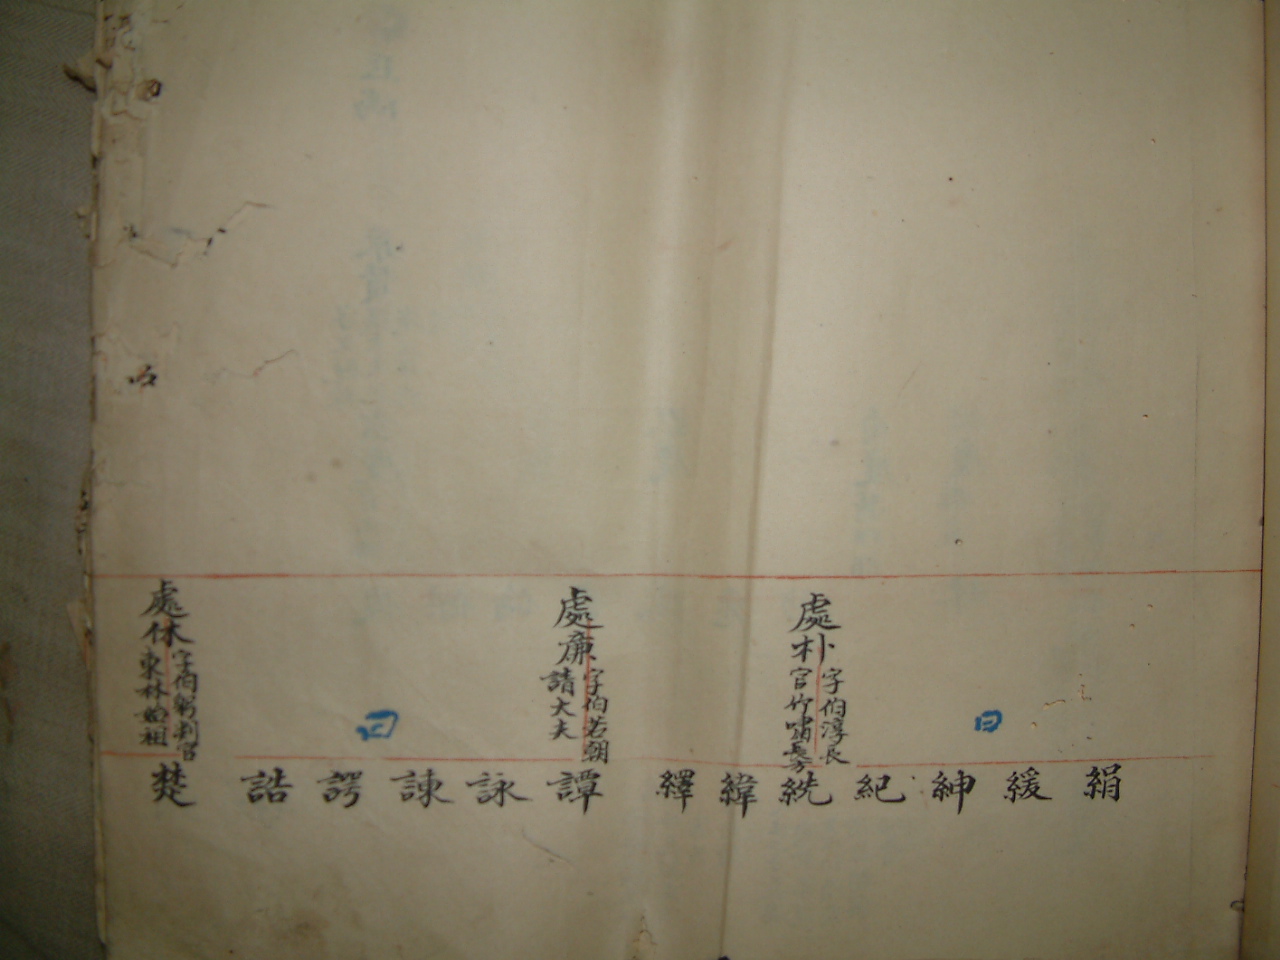 處朴
字伯淳長
官竹嘯房
處廉
字伯若朝
請大夫
處休
字伯躬判官
東林始祖
曰
曰
絹 緩 紳 紀 絖 緯 繹
譚 詠 諫 諤 誥
楚